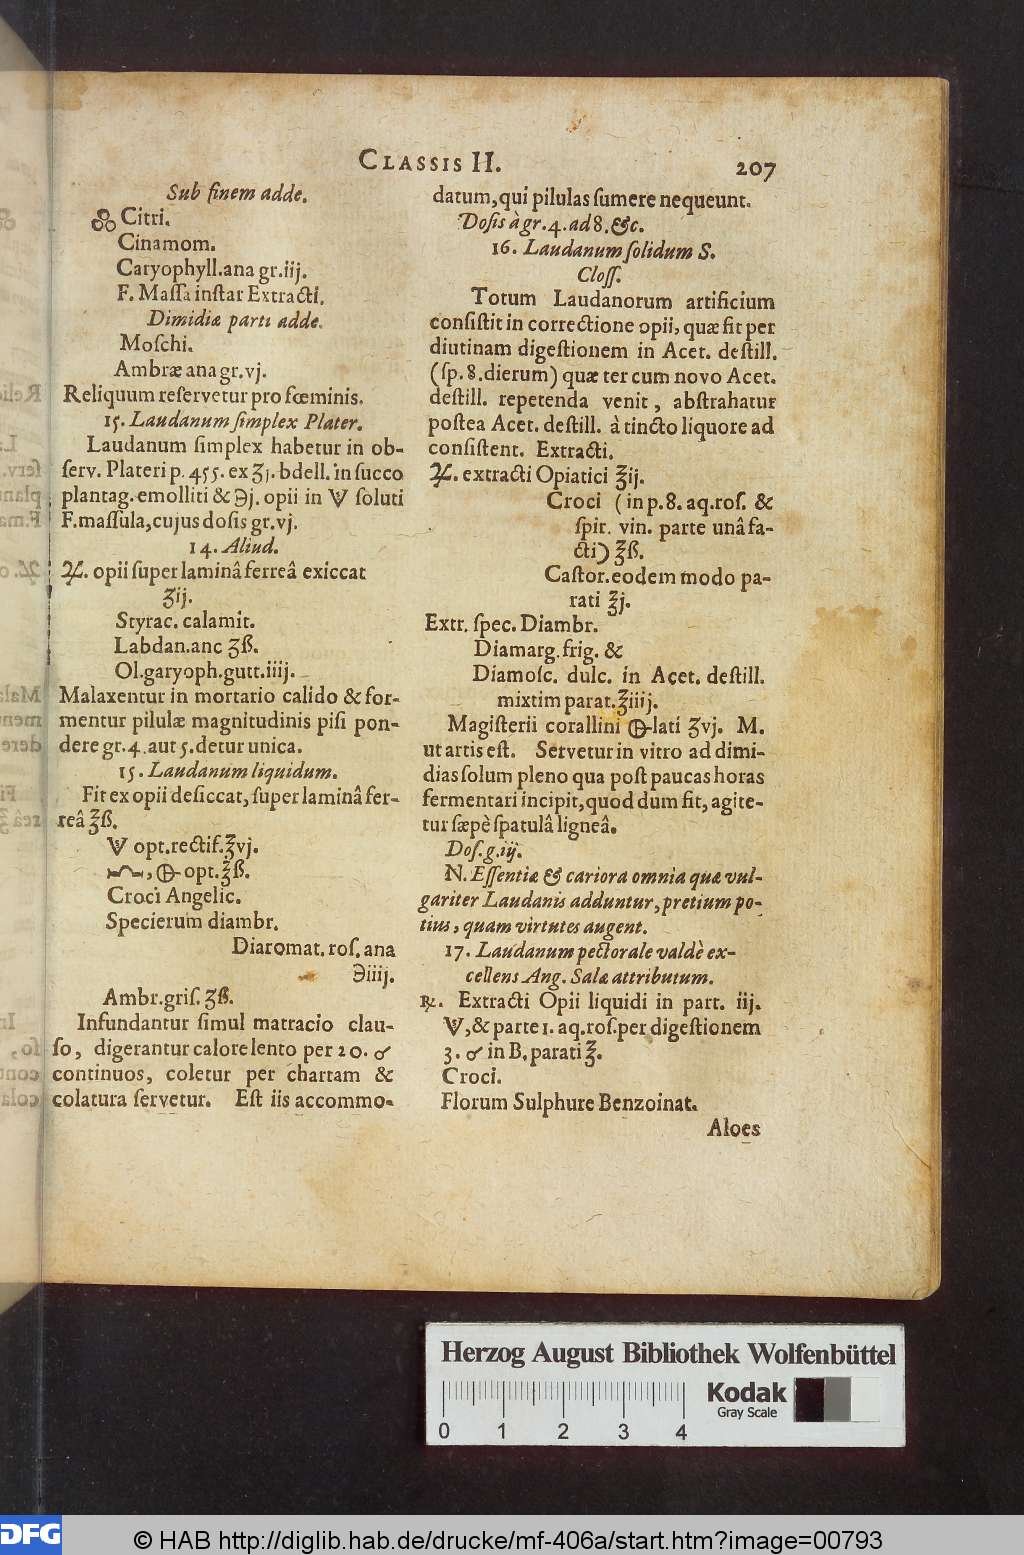 CLASSIS II.
207
Sub finem adde.
Citri.
Cinamom.
Caryophyll.ana gr.iij.
F. Maſſa inſtar Extracti.
Dimidiæ parti adde.
Moſchi.
Ambræ ana gr.vj.
Reliquum reſervetur pro fœminis.
15. Laudanum ſimplex Plater.
Laudanum ſimplex habetur in ob-
ſerv. Plateri p. 455. ex ʒj. bdell. in ſucco
plantag. emolliti & ℈j. opii in 🜈 ſoluti
F. maſſula, cujus doſis gr.vj.
14. Aliud.
♃. opii ſuper laminâ ferreâ exiccat
ʒij.
Styrac. calamit.
Labdan.anc ʒß.
Ol.garyoph.gutt.iiij.
Malaxentur in mortario calido & for-
mentur pilulæ magnitudinis piſi pon-
dere gr.4. aut 5. detur unica.
15. Laudanum liquidum.
Fit ex opii deſiccat, ſuper laminâ fer-
reâ ℥ß.
🜈 opt.rectif.℥vj.
, 🜕 opt.℥ß.
Croci Angelic.
Specierum diambr.
Diaromat. roſ. ana
℈iiij.
Ambr.griſ. ʒß.
Infundantur ſimul matracio clau-
ſo, digerantur calore lento per 20. ♂
continuos, coletur per chartam &
colatura ſervetur. Eſt iis accommo-
datum, qui pilulas ſumere nequeunt.
Doſis à gr. 4. ad 8. &c.
16. Laudanum ſolidum S.
Cloſſ.
Totum Laudanorum artificium
conſiſtit in correctione opii, quæ fit per
diutinam digeſtionem in Acet. deſtill.
(ſp. 8. dierum) quæ ter cum novo Acet.
deſtill. repetenda venit, abſtrahatur
poſtea Acet. deſtill. à tincto liquore ad
conſiſtent. Extracti.
♃. extracti Opiatici ℥ij.
Croci (in p.8. aq.roſ. &
ſpir. vin. parte unâ fa-
cti) ℥ß.
Caſtor. eodem modo pa-
rati ℥j.
Extr. ſpec. Diambr.
Diamarg. frig. &
Diamoſc. dulc. in Acet. deſtill.
mixtim parat. ℥iiij.
Magiſterii corallini 🜕lati ʒvj. M.
ut artis eſt. Servetur in vitro ad dimi-
dias ſolum pleno qua poſt paucas horas
fermentari incipit, quod dum fit, agite-
tur ſæpè ſpatulâ ligneâ.
Doſ. g.iij.
N. Eſſentiæ & cariora omnia quæ vul-
gariter Laudanis adduntur, pretium po-
tius, quam virtutes augent.
17. Laudanum pectorale valdè ex-
cellens Ang. Salæ attributum.
℞. Extracti Opii liquidi in part. iij.
🜈, & parte 1. aq.roſ.per digeſtionem
3. ♂ in B. parati ℥.
Croci.
Florum Sulphure Benzoinat.
Aloes
Herzog August Bibliothek Wolfenbüttel
Kodak
Gray Scale
0 1 2 3 4
DFG
© HAB http://diglib.hab.de/drucke/mf-406a/start.htm?image=00793